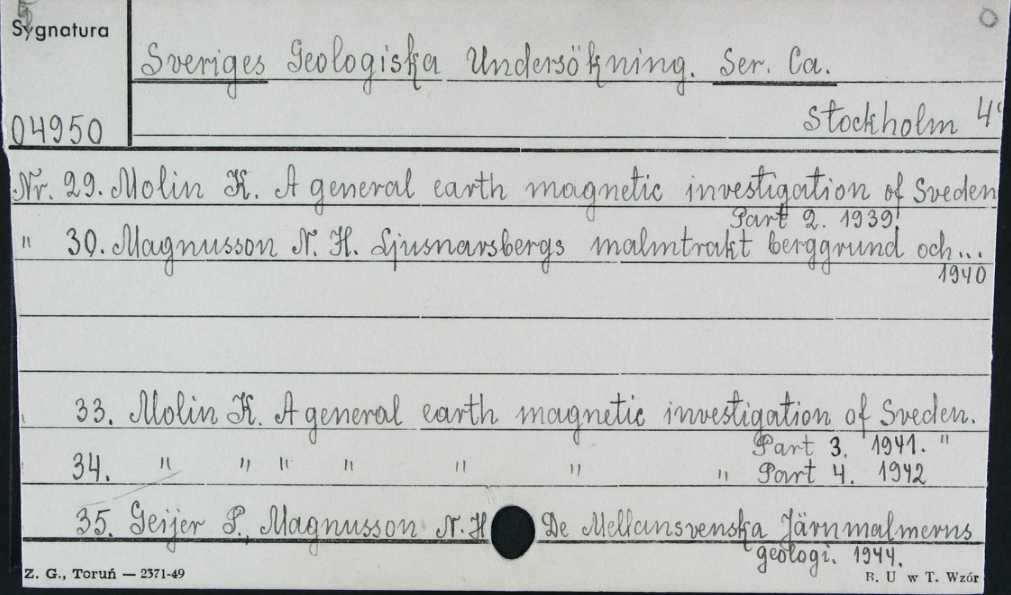 Sygnatura
Sveriges Geologiska Undersökning. Ser. Ca.
04950
Stockholm 4°
Nr. 29. Molin K. A general earth magnetic investigation of Sveden
Part 2. 1939
" 30. Magnusson N. H. Ljusnarsbergs malmtrakt berggrund och...
1940
33. Molin K. A general earth magnetic investigation of Sveden.
Part 3. 1941. "
34. " " " " " " " Part 4. 1942
35. Geijer P., Magnusson N. H De Mellansvenska Järnmalmerns
geologi. 1944.
Z. G., Toruń — 2371-49
B. U w T. Wzór